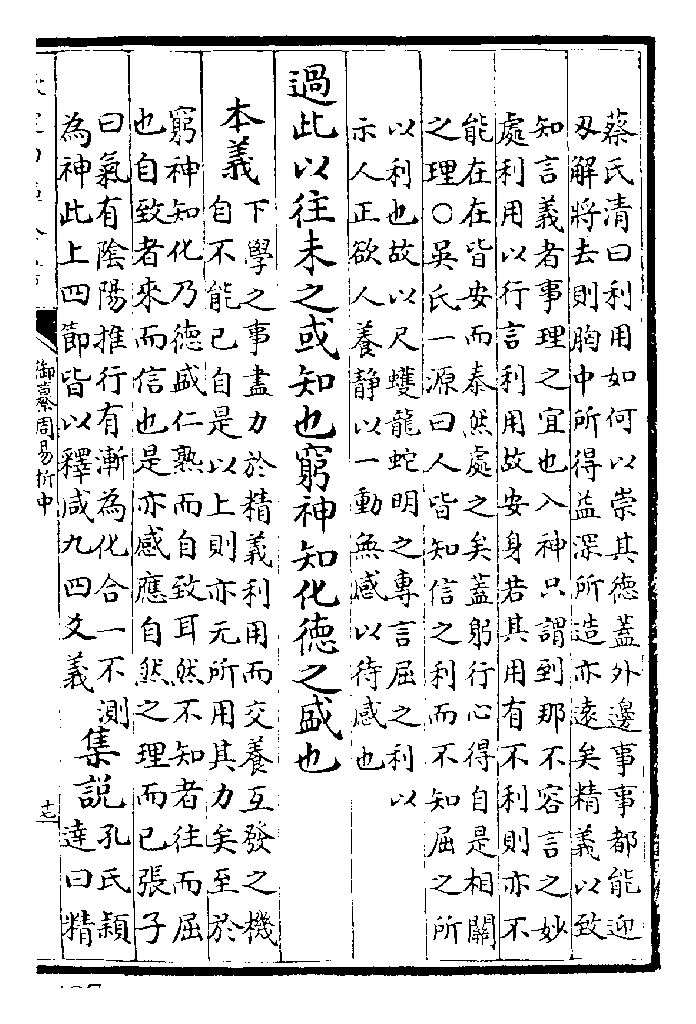 蔡氏清曰利用如何以崇其德蓋外邊事事都能迎
刃解將去則胸中所得益深所造亦遠矣精義以致
知言義者事理之宜也入神只謂到那不容言之妙
處利用以行言利用故安身若其用有不利則亦不
能在在皆安而泰然處之矣蓋躬行心得自是相關
之理○吳氏一源曰人皆知信之利而不知屈之所
以利也故以尺蠖龍蛇明之專言屈之利以
示人正欲人養靜以一動無感以待感也
過此以往未之或知也窮神知化德之盛也
本義
下學之事盡力於精義利用而交養互發之機
自不能已自是以上則亦无所用其力矣至於
窮神知化乃德盛仁熟而自致耳然不知者往而屈
也自致者來而信也是亦感應自然之理而已張子
曰氣有陰陽推行有漸為化合一不測
為神此上四節皆以釋咸九四爻義
集說
孔氏穎
達曰精
御纂周易折中